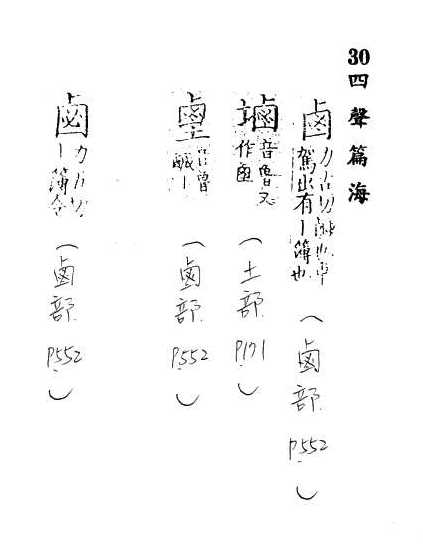 30四聲篇海
鹵 力古切鹹也車
駕出有丨簿也
(鹵部
P552)
塷 音魯又
作鹵
(土部
P171)
音魯
鹹丨
(鹵部
P552)
力古切
丨簿今
(鹵部
P552)